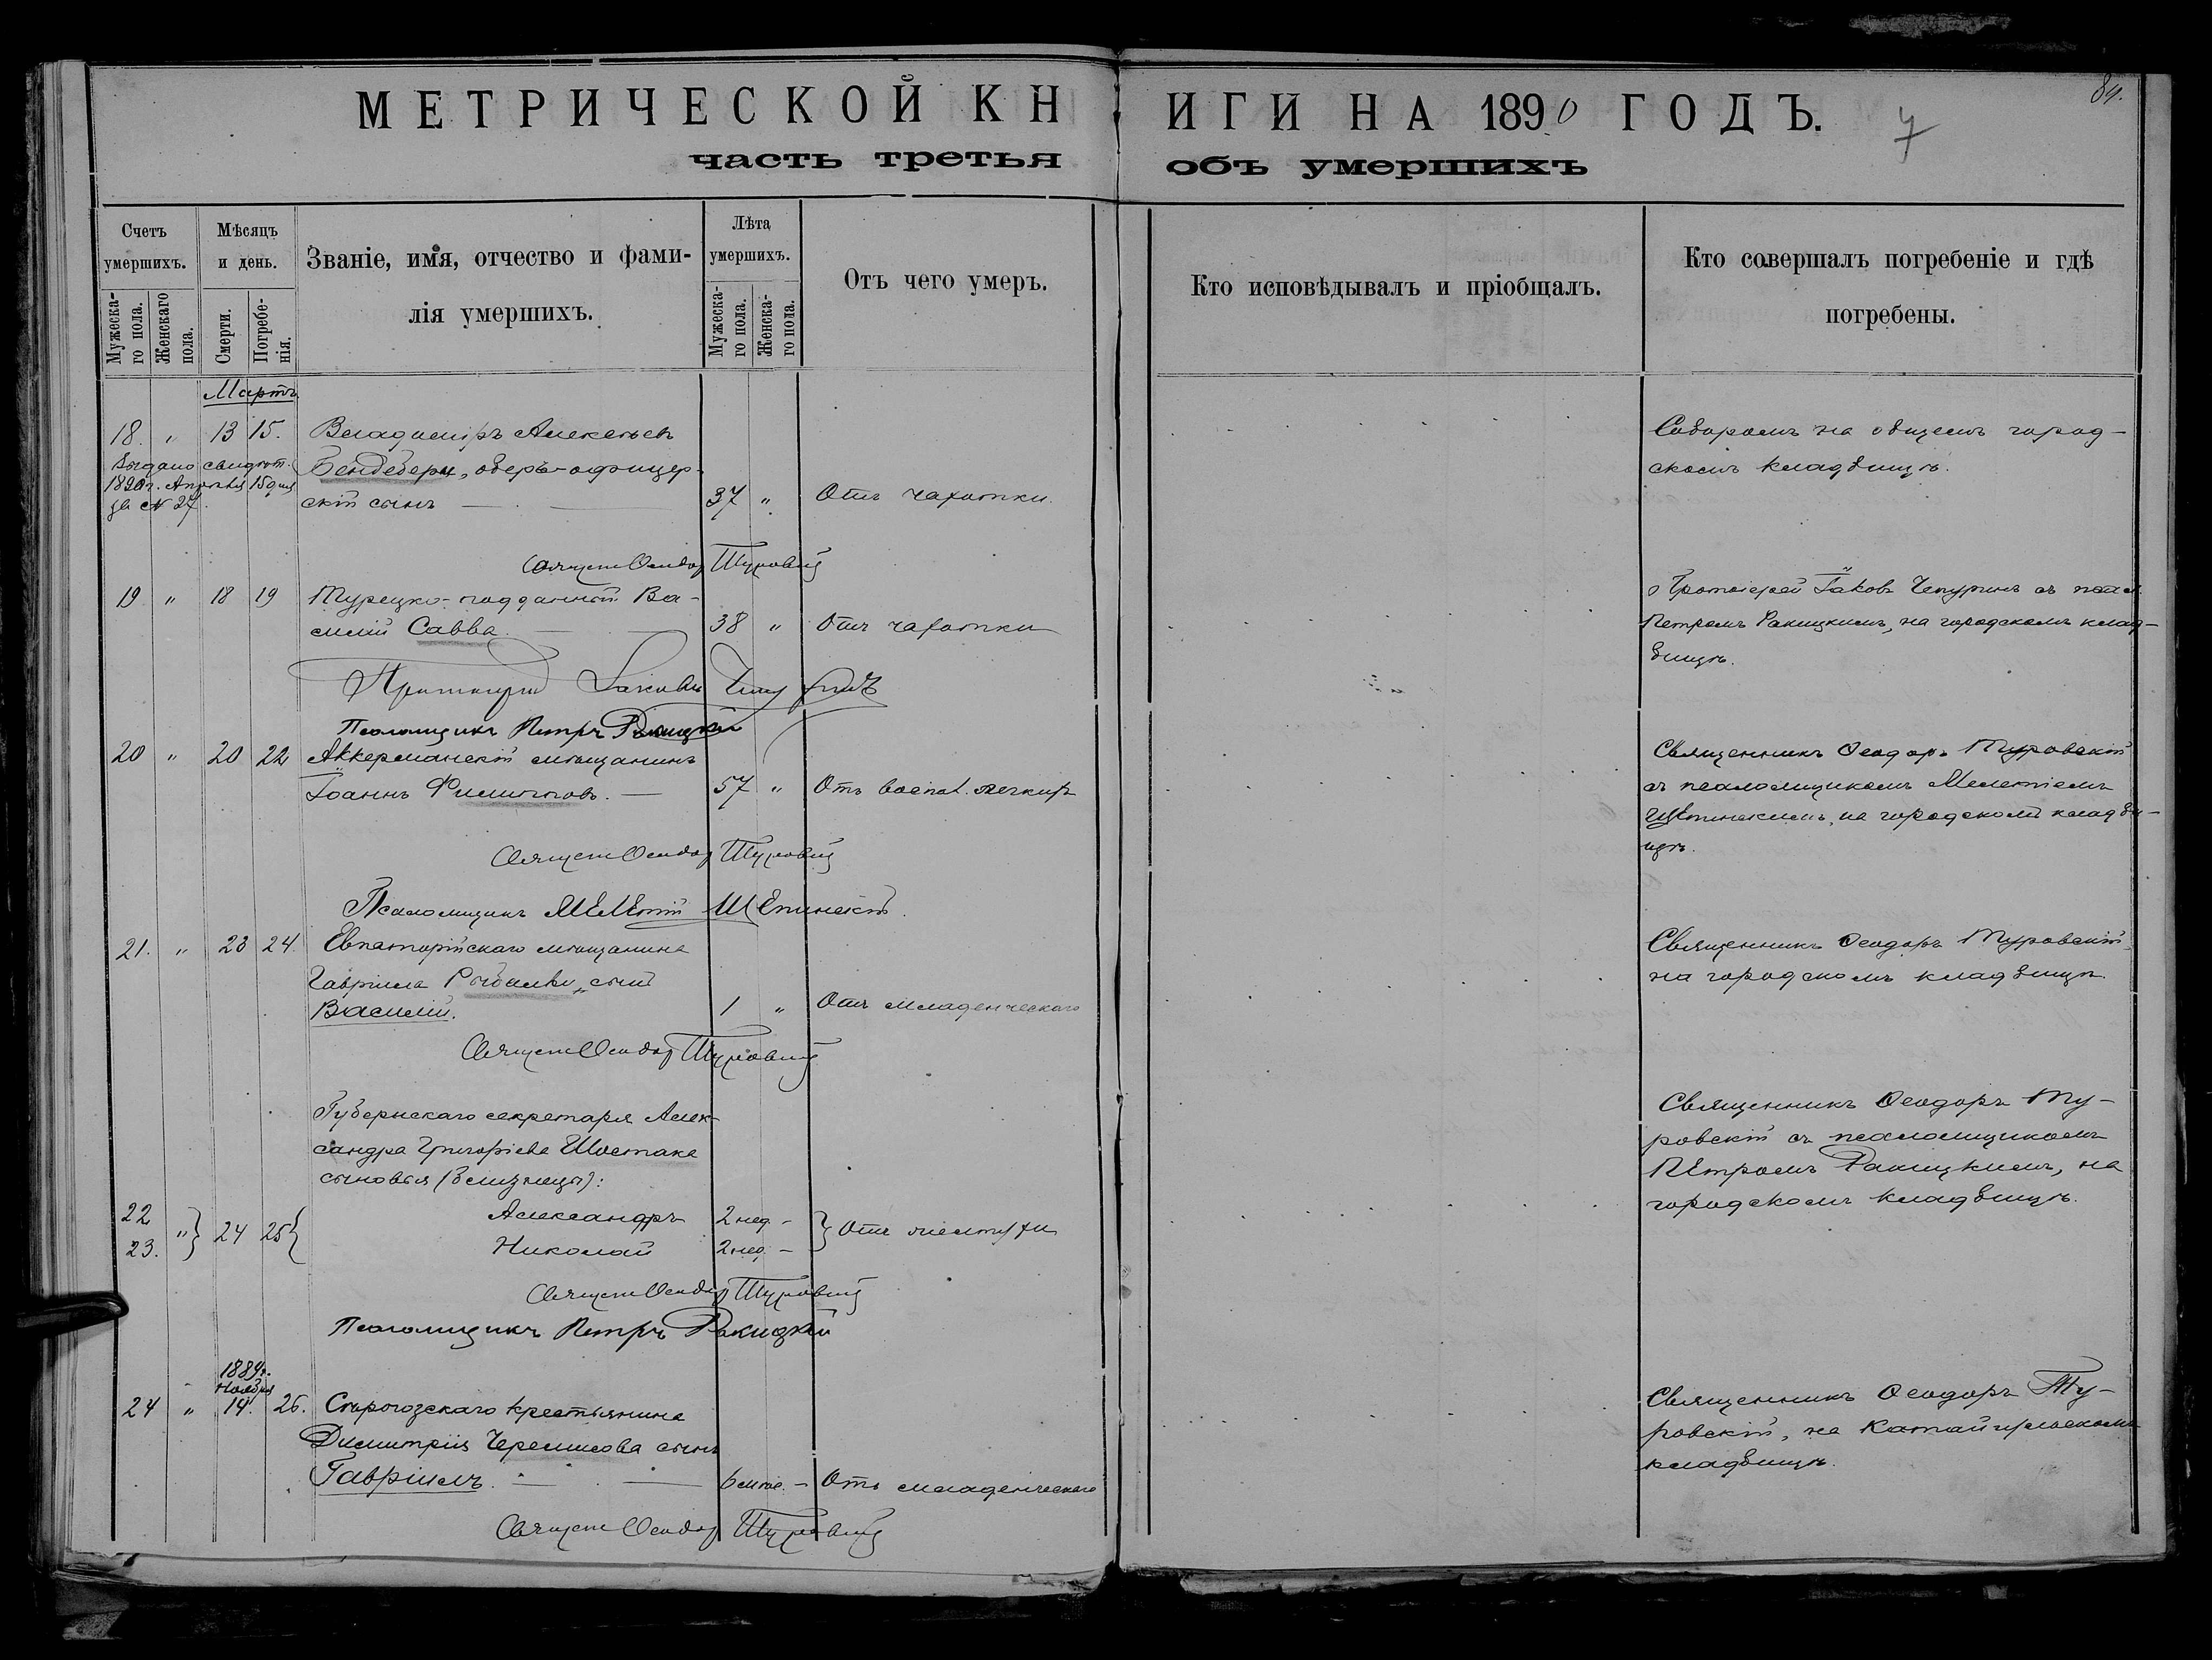 МЕТРИЧЕСКОЙ КН ИГИ НА 1890 ГОДЪ.
84.
7
часть третья объ умершихъ
Счетъ умершихъ.
Мужеска-го пола.
Женскаго пола.
Мѣсяцъ и день.
Смерти.
Погребе-нія.
Званіе, имя, отчество и фами-
лія умершихъ.
Лѣта умершихъ.
Мужеска-го пола.
Женска-го пола.
Отъ чего умеръ.
Кто исповѣдывалъ и пріобщалъ.
Кто совершалъ погребеніе и гдѣ
погребены.
Мартъ
18. " 13 15. Владиміръ Алексѣевъ
Бендебери, оберъ-офицер-
скій сынъ 37 " Отъ чахотки
Выдано свидѣт.
1890 г. Апрѣля 15 дня
за № 27.
Соборомъ на общемъ город-
скомъ кладбищѣ.
Священ Ѳеодор Туровскій
19 " 18 19 Турецко-подданный Ва-
силій Савва. 38 " Отъ чахотки
Протоіерей Іаковъ Чепуринъ съ псал.
Петромъ Ракицкимъ, на городскомъ клад-
бищѣ.
Протоіерей Іаковъ Чепуринъ
Псаломщикъ Петръ Ракицкій
20 " 20 22 Аккерманскій мѣщанинъ
Іоаннъ Филипповъ. 57 " Отъ воспал. легкихъ
Священникъ Ѳеодоръ Туровскій
съ псаломщикомъ Мелетіемъ
на городскомъ кладби-
щѣ.
Священ Ѳеодор Туровскій
Псаломщикъ Мелетій
21. " 23 24. Евпаторійскаго мѣщанина
Гавріила Рыбалки, сынъ
Василій. 1 " Отъ младенческаго
Священникъ Ѳеодоръ Туровскій
на городскомъ кладбищѣ.
Священ Ѳеодор Туровскій
Губернскаго секретаря Алек-
сандра Григорьева Шостака
сыновья (близнецы):
22 Александръ 2 нед. -
23. " 24 25 Николай 2 нед. - Отъ
Священникъ Ѳеодоръ Ту-
ровскій съ псаломщикомъ
Петромъ Ракицкимъ, на
городскомъ кладбищѣ.
Священ Ѳеодор Туровскій
Псаломщикъ Петръ Ракицкій
1889 г.
Ноября
24 " 14. 26. крестьянина
Димитрія Черемисова сынъ
Гавріилъ. 6 мѣс. - Отъ младенческаго
Священникъ Ѳеодоръ Ту-
ровскій, на
кладбищѣ.
Священ Ѳеодор Туровскій